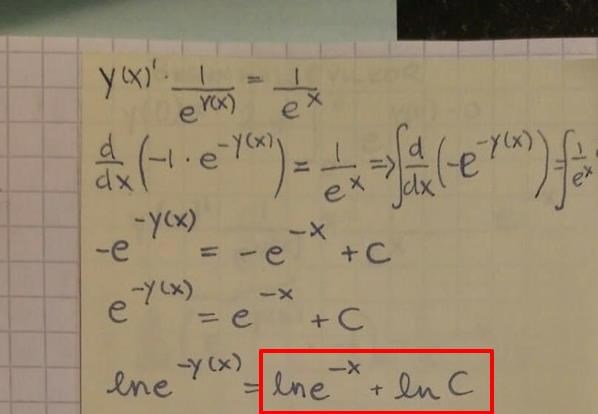 y(x)' · 1/e^{y(x)} = 1/e^x
d/dx (-1 · e^{-y(x)}) = 1/e^x => ∫ d/dx (-e^{-y(x)}) = ∫ 1/e^x
-e^{-y(x)} = -e^{-x} + C
e^{-y(x)} = e^{-x} + C
ln e^{-y(x)} = ln e^{-x} + ln C